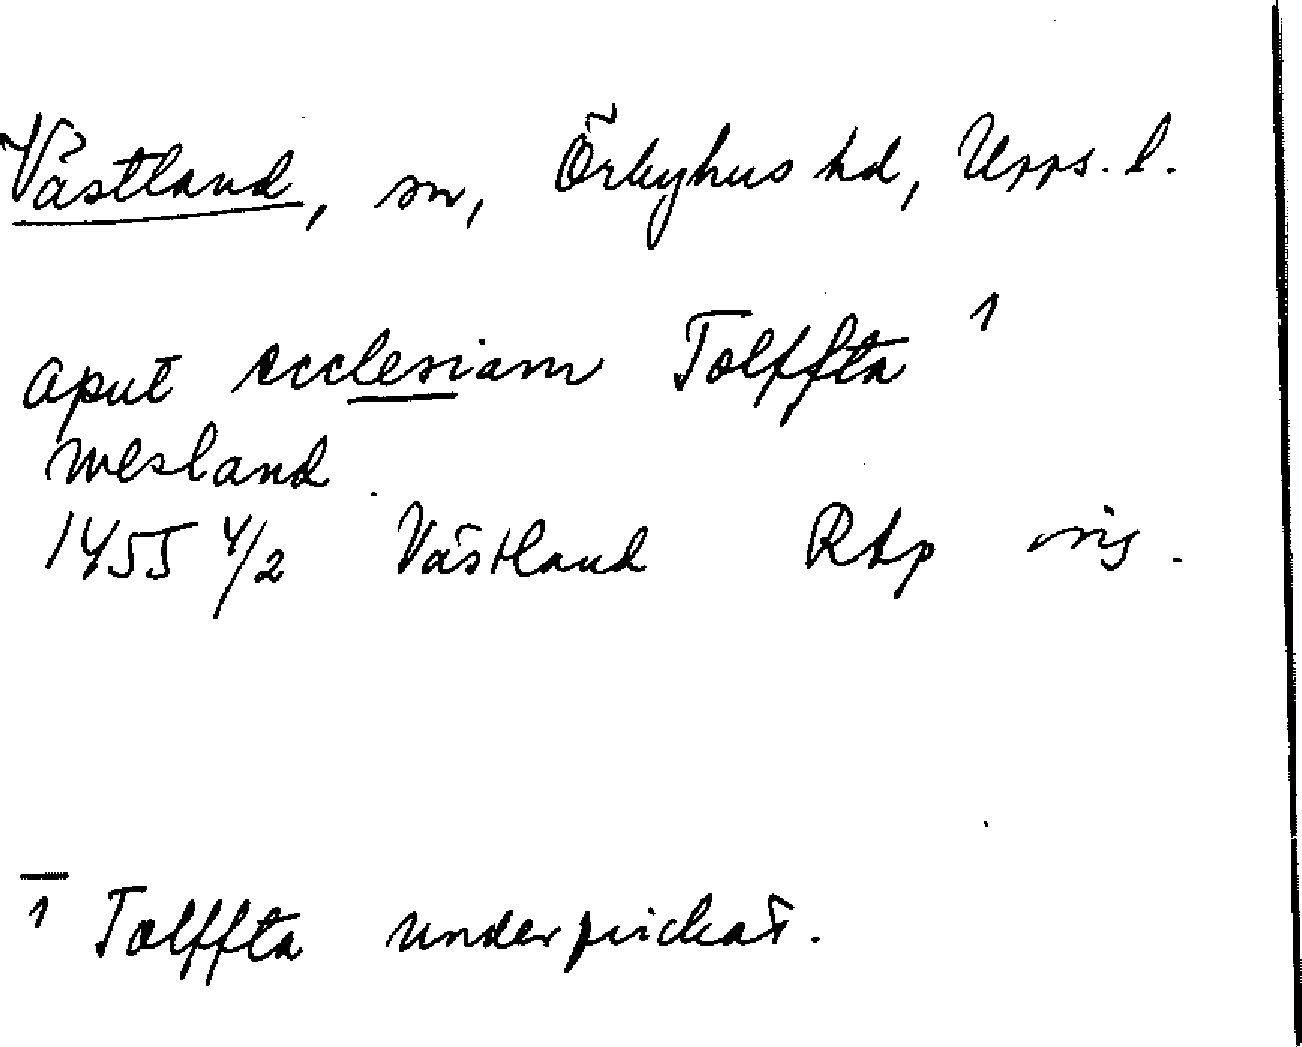 Västland, sn, Örbyhus hd, Upps. l.
aput ecclesiam Tolffta ¹
wesland
1455 4/2 Västland RAp
1 Tolffta underprickat.